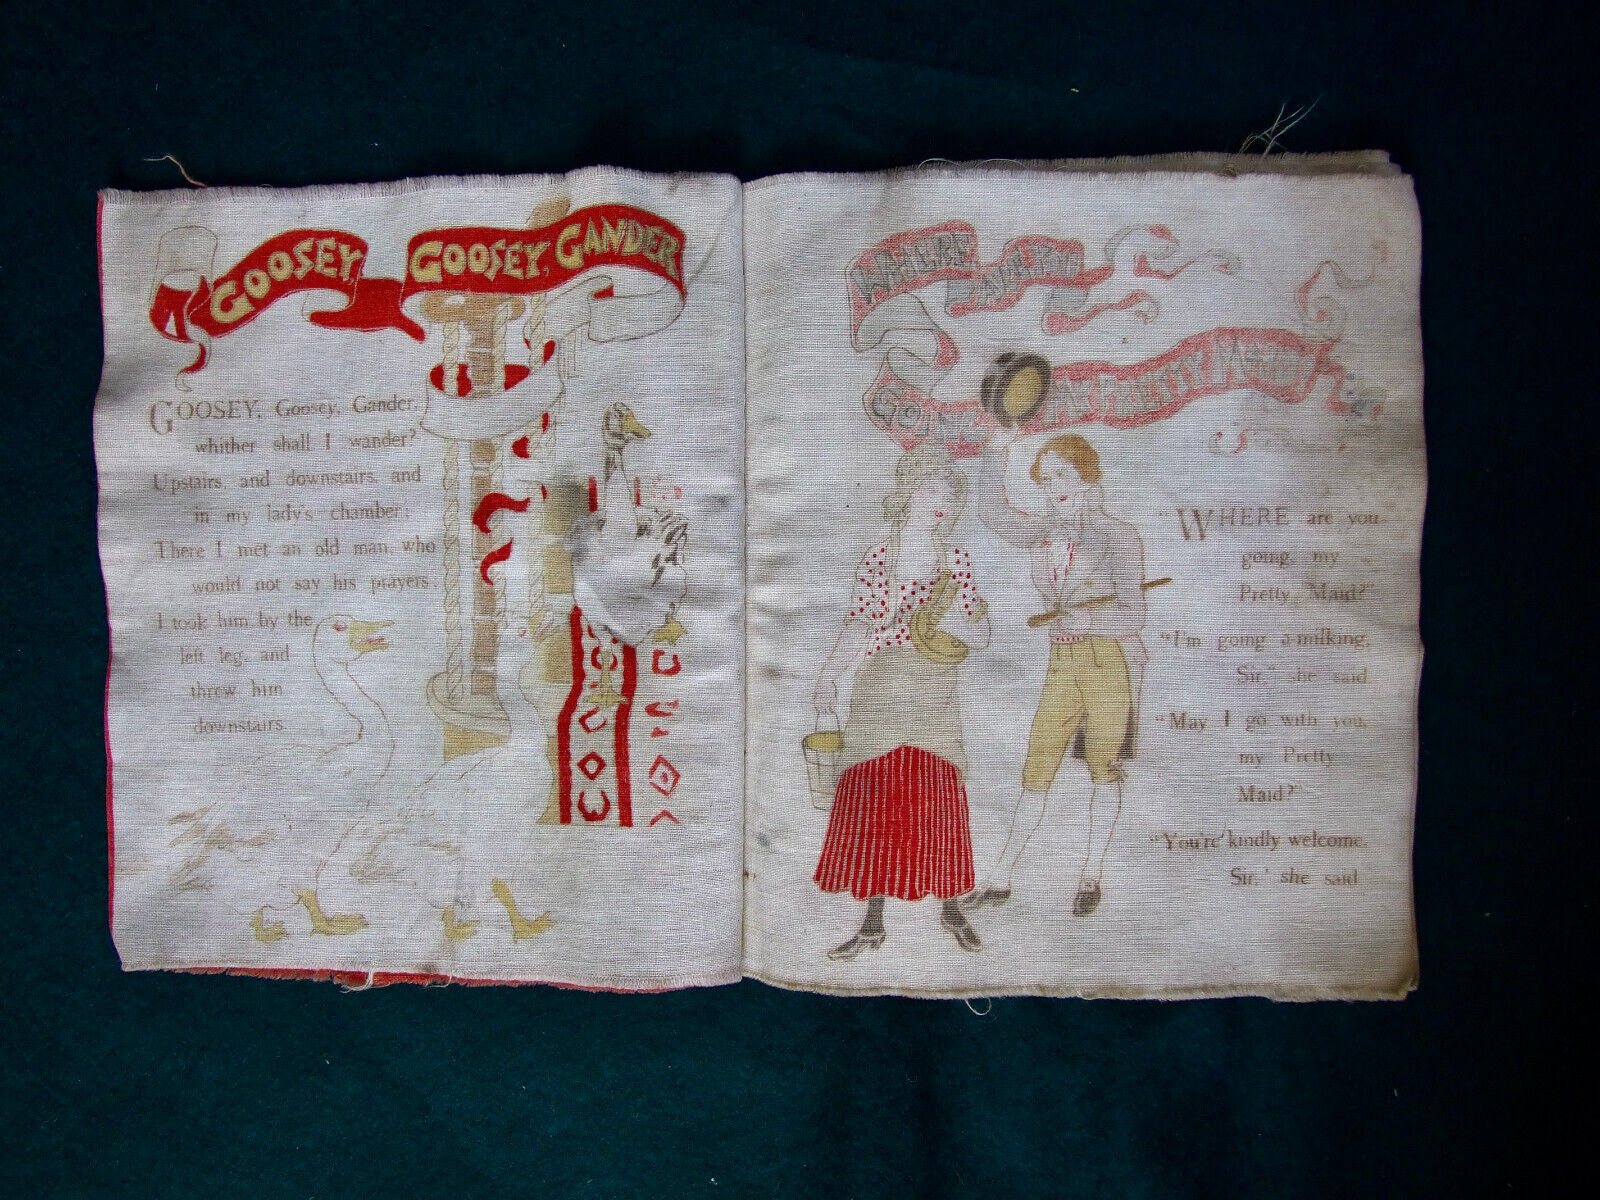 GOOSEY, GOOSEY, GANDER
GOOSEY, Goosey, Gander,
whither shall I wander?
Upstairs, and downstairs, and
in my lady's chamber;
There I met an old man, who
would not say his prayers;
I took him by the
left leg, and
threw him
downstairs.
WHERE ARE YOU
GOING MY PRETTY MAID
"WHERE are you
going, my
Pretty Maid?"
"I'm going a-milking,
Sir," she said
"May I go with you,
my Pretty
Maid?"
"You're kindly welcome,
Sir," she said